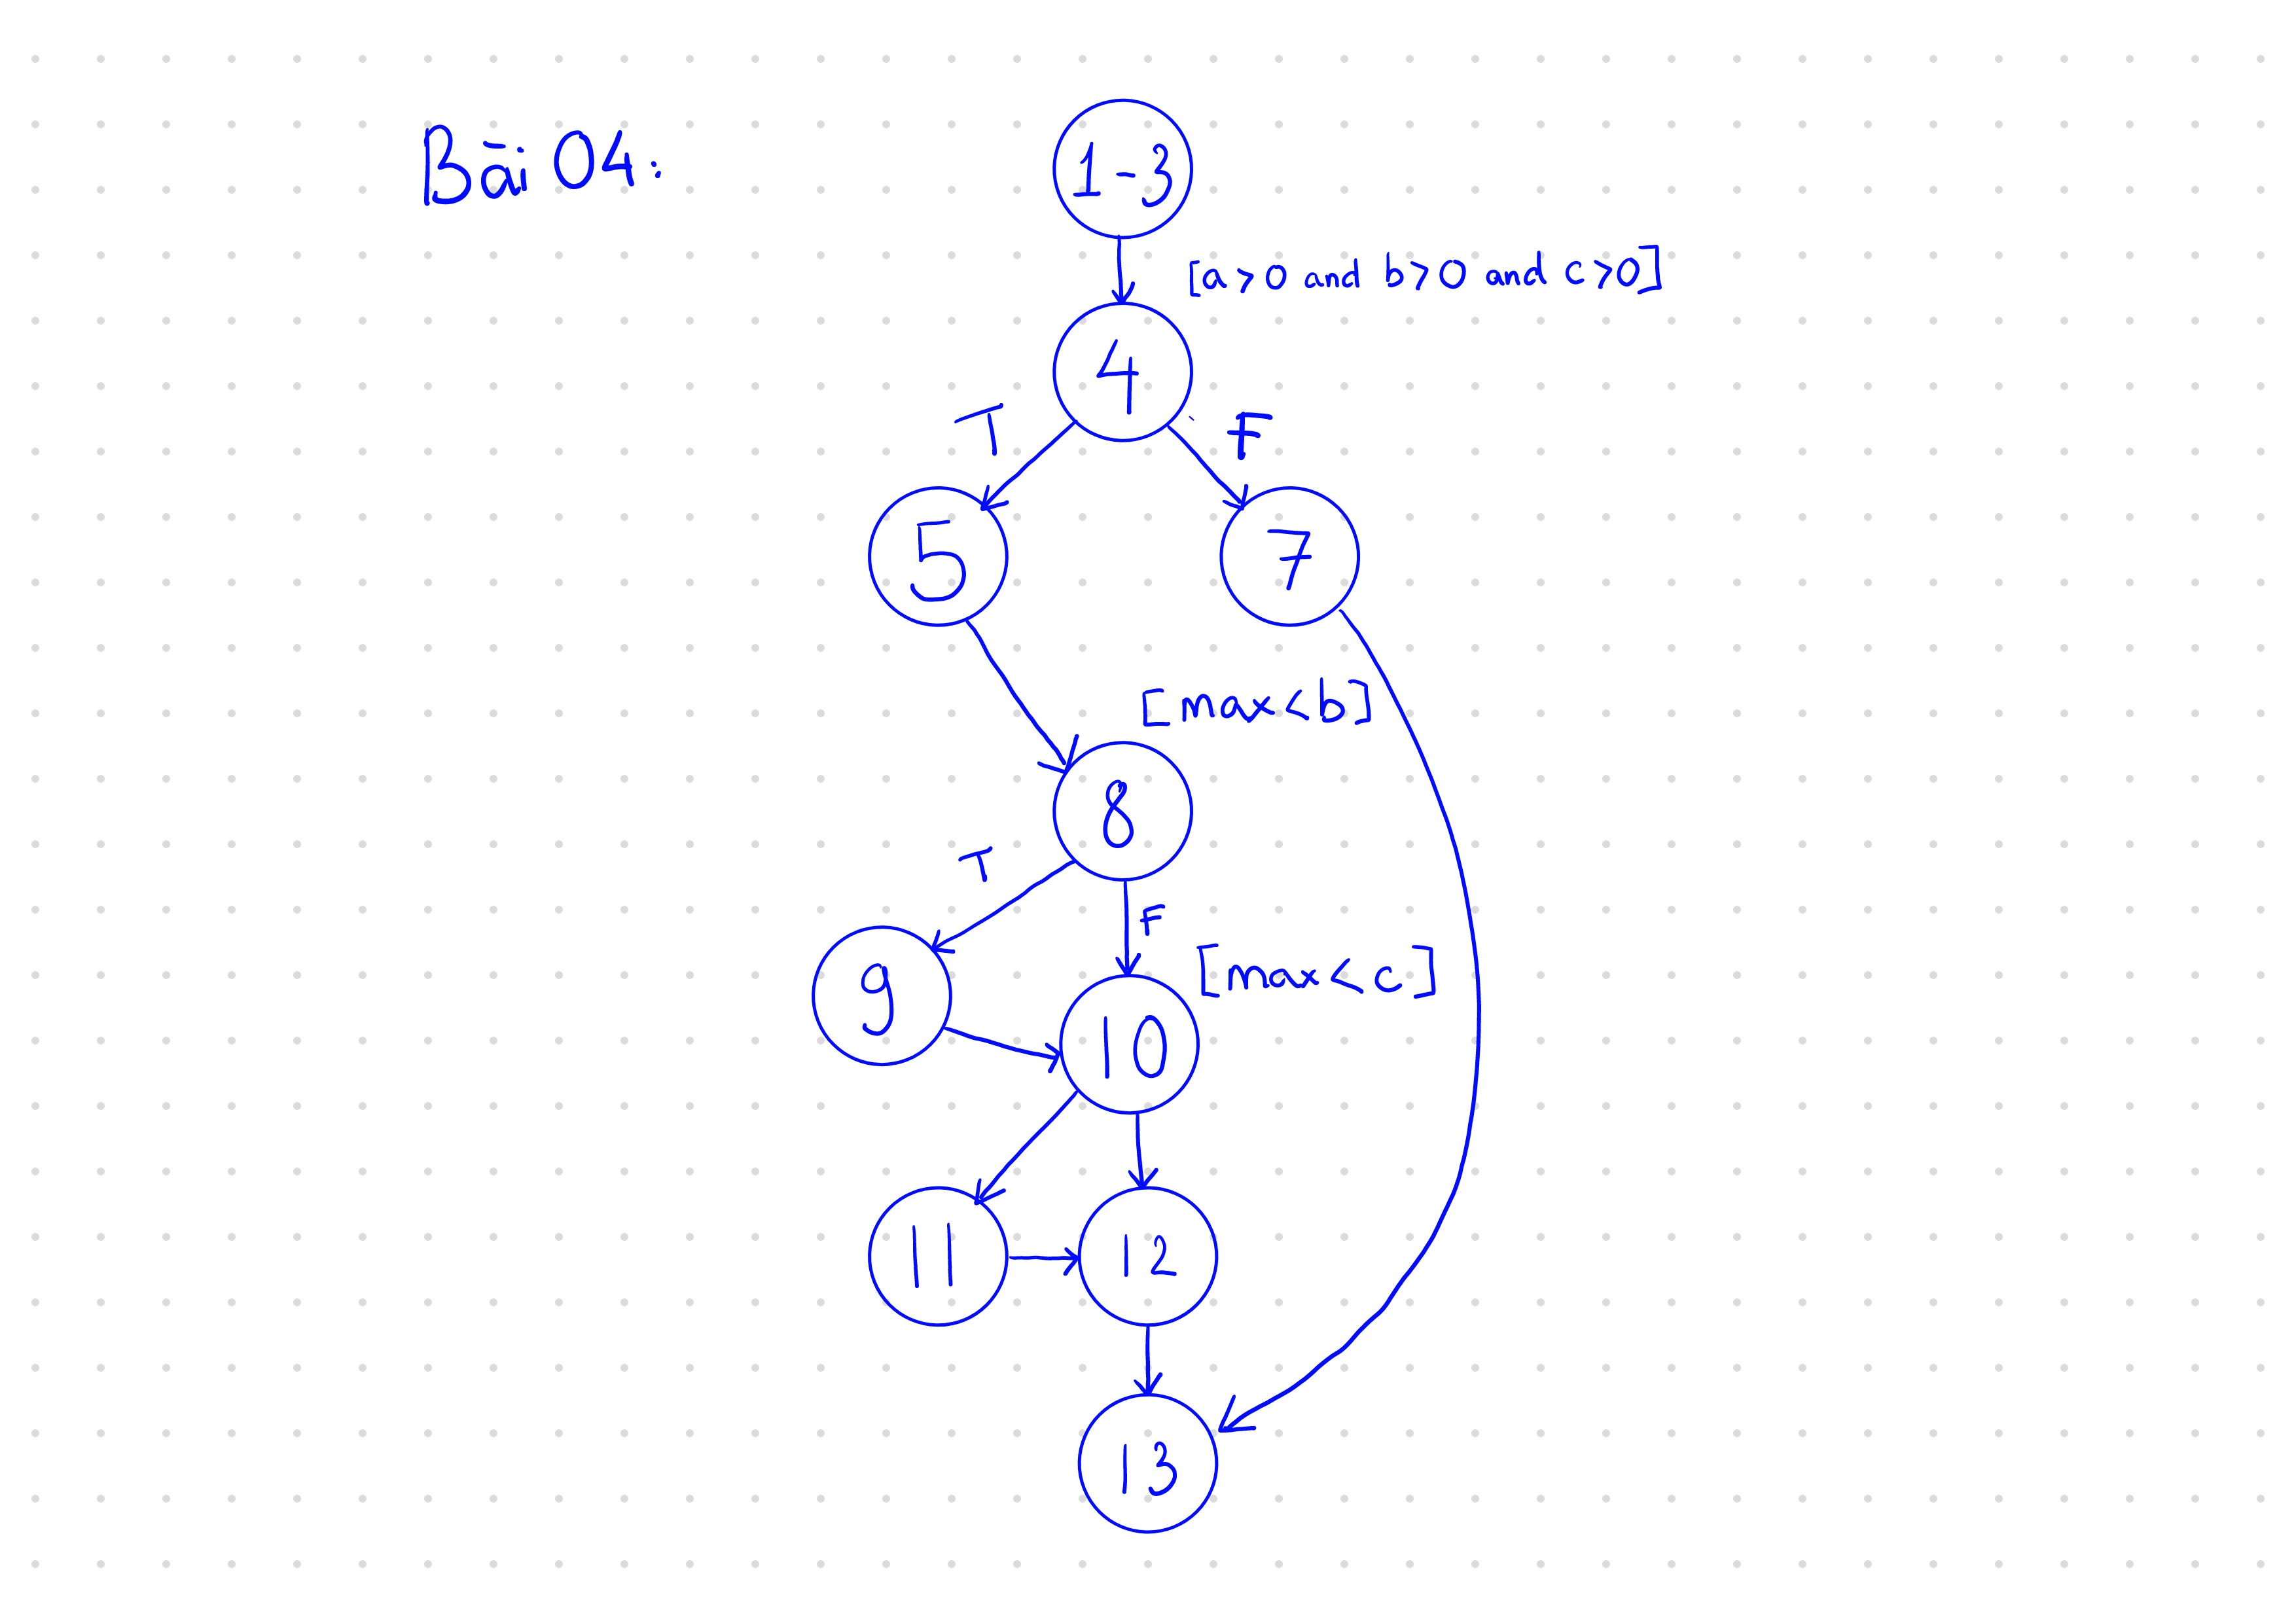 Bài 04:
1-3
[a>0 and b>0 and c>0]
4
T
F
5
7
[max<b]
8
T
F
9
[max<c]
10
11
12
13